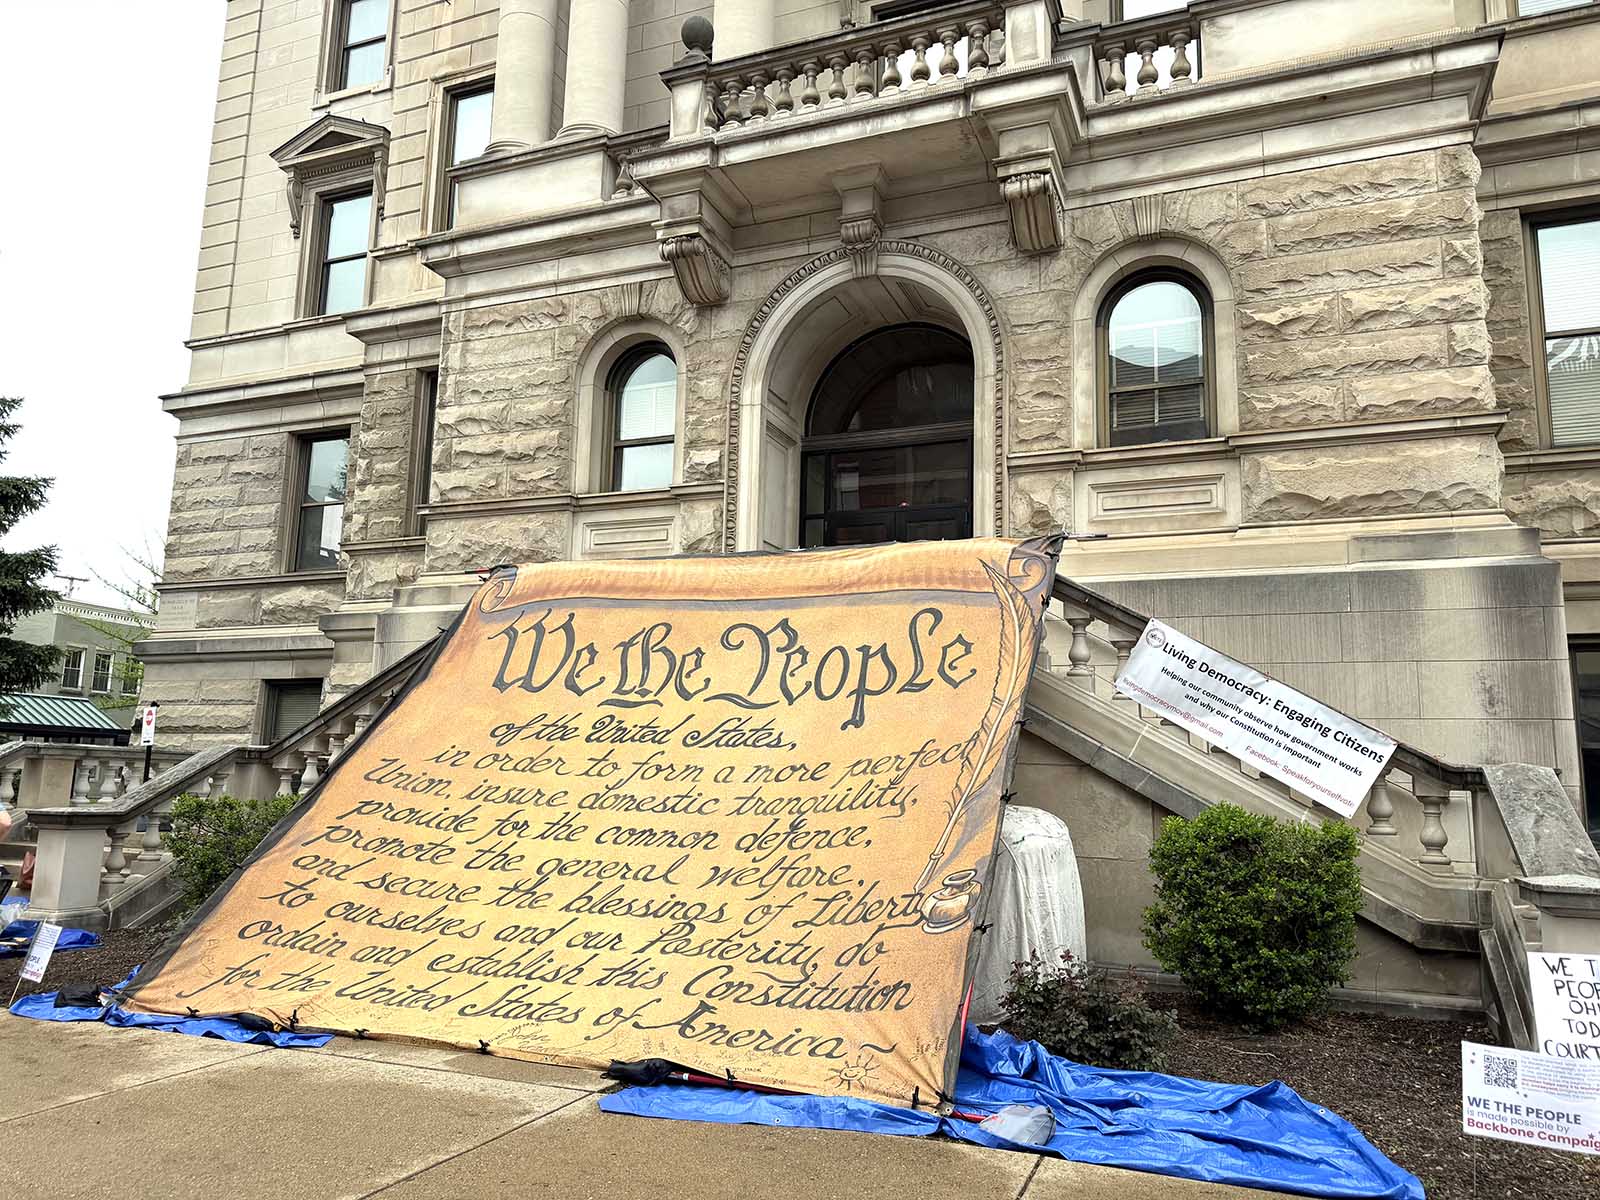 We the People
of the United States,
in order to form a more perfect
Union, insure domestic tranquility,
provide for the common defence,
promote the general welfare,
and secure the blessings of Liberty
to ourselves and our Posterity, do
ordain and establish this Constitution
for the United States of America
Living Democracy: Engaging Citizens
Helping our community observe how government works
and why our Constitution is important
livingdemocracymov@gmail.com
Facebook: Speakforyourselfvote
WE T
PEOP
OH
TOD
COURT
WE THE PEOPLE
is made possible by
Backbone Campaig